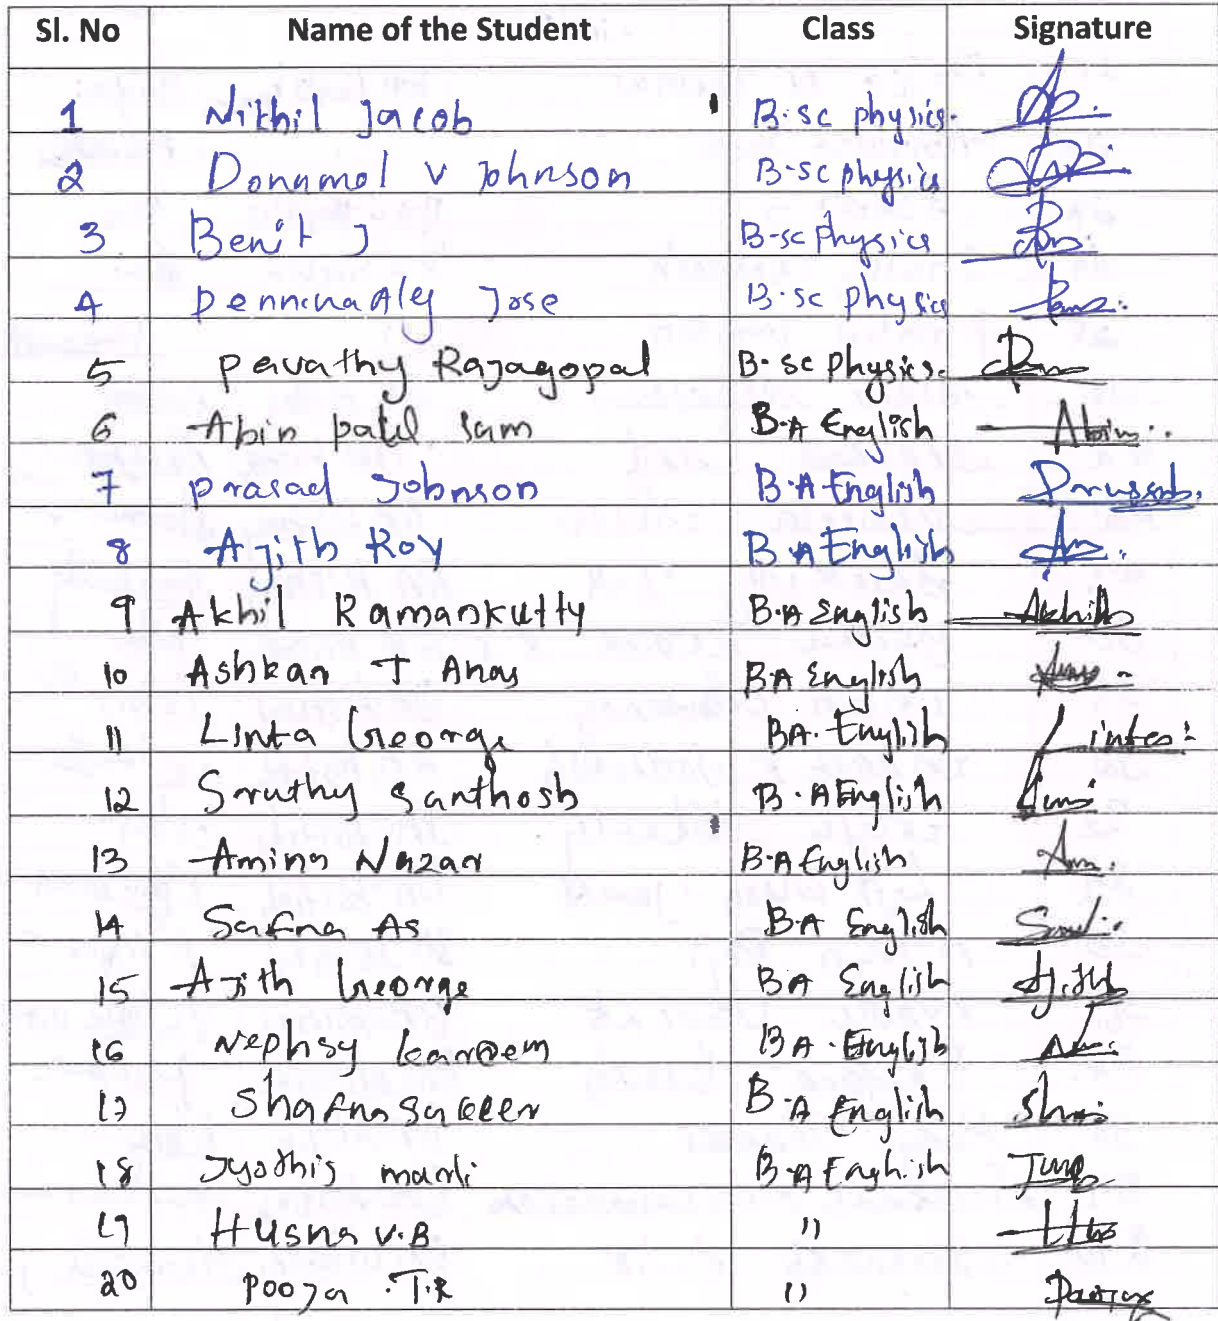 Sl. No Name of the Student Class Signature
1 Nithil Jacob B.sc physics.
2 Donamol V Johnson B-sc physics
3 Benit J B-sc physics
4 Pennina Aley Jose B.sc physics
5 Pavathy Rajagopal B-sc Physics.
6 Abin patel Sam B.A English Abin..
7 Prasad Johnson B.A English
8 Ajith Roy B.A English
9 Akhil Ramankutty B.A English Akhil
10 Ashkan T Anas B.A English
11 Linta George BA. English
12 Sruthy Santhosh B.A English
13 Amina Nazar B.A English
14 Safna AS B.A English
15 Ajith George BA English Ajith
16 Nephsy kareem BA. English
17 Shafna Sakeer B.A English
18 Jyothis B.A English
19 Husna V.B "
20 Pooja .T.R "